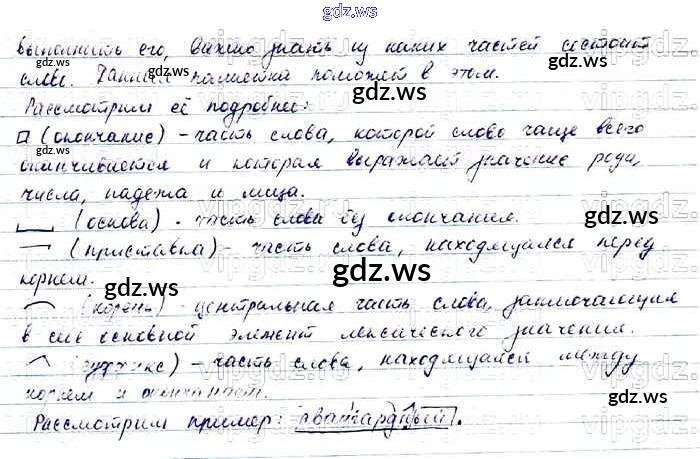 gdz.ws
выполнить его, важно знать из каких частей состоит
слово. Данная памятка поможет в этом.
gdz.ws
gdz.ws
Рассмотрим её подробнее:
(окончание) - часть слова, которой слово чаще всего
gdz.ws
gdz.ws
оканчивается и которая выражает значение рода,
числа, падежа и лица.
(основа) - часть слова без окончания.
gdz.ws
gdz.ws
(приставка) - часть слова, находящаяся перед
корнем.
gdz.ws
(корень) - центральная часть слова, заключающая
в себе основной элемент лексического значения.
gdz.ws
gdz.ws
(суффикс) - часть слова, находящаяся между
корнем и окончанием.
gdz.ws
gdz.ws
Рассмотрим пример: авангардный.
gdz.ws